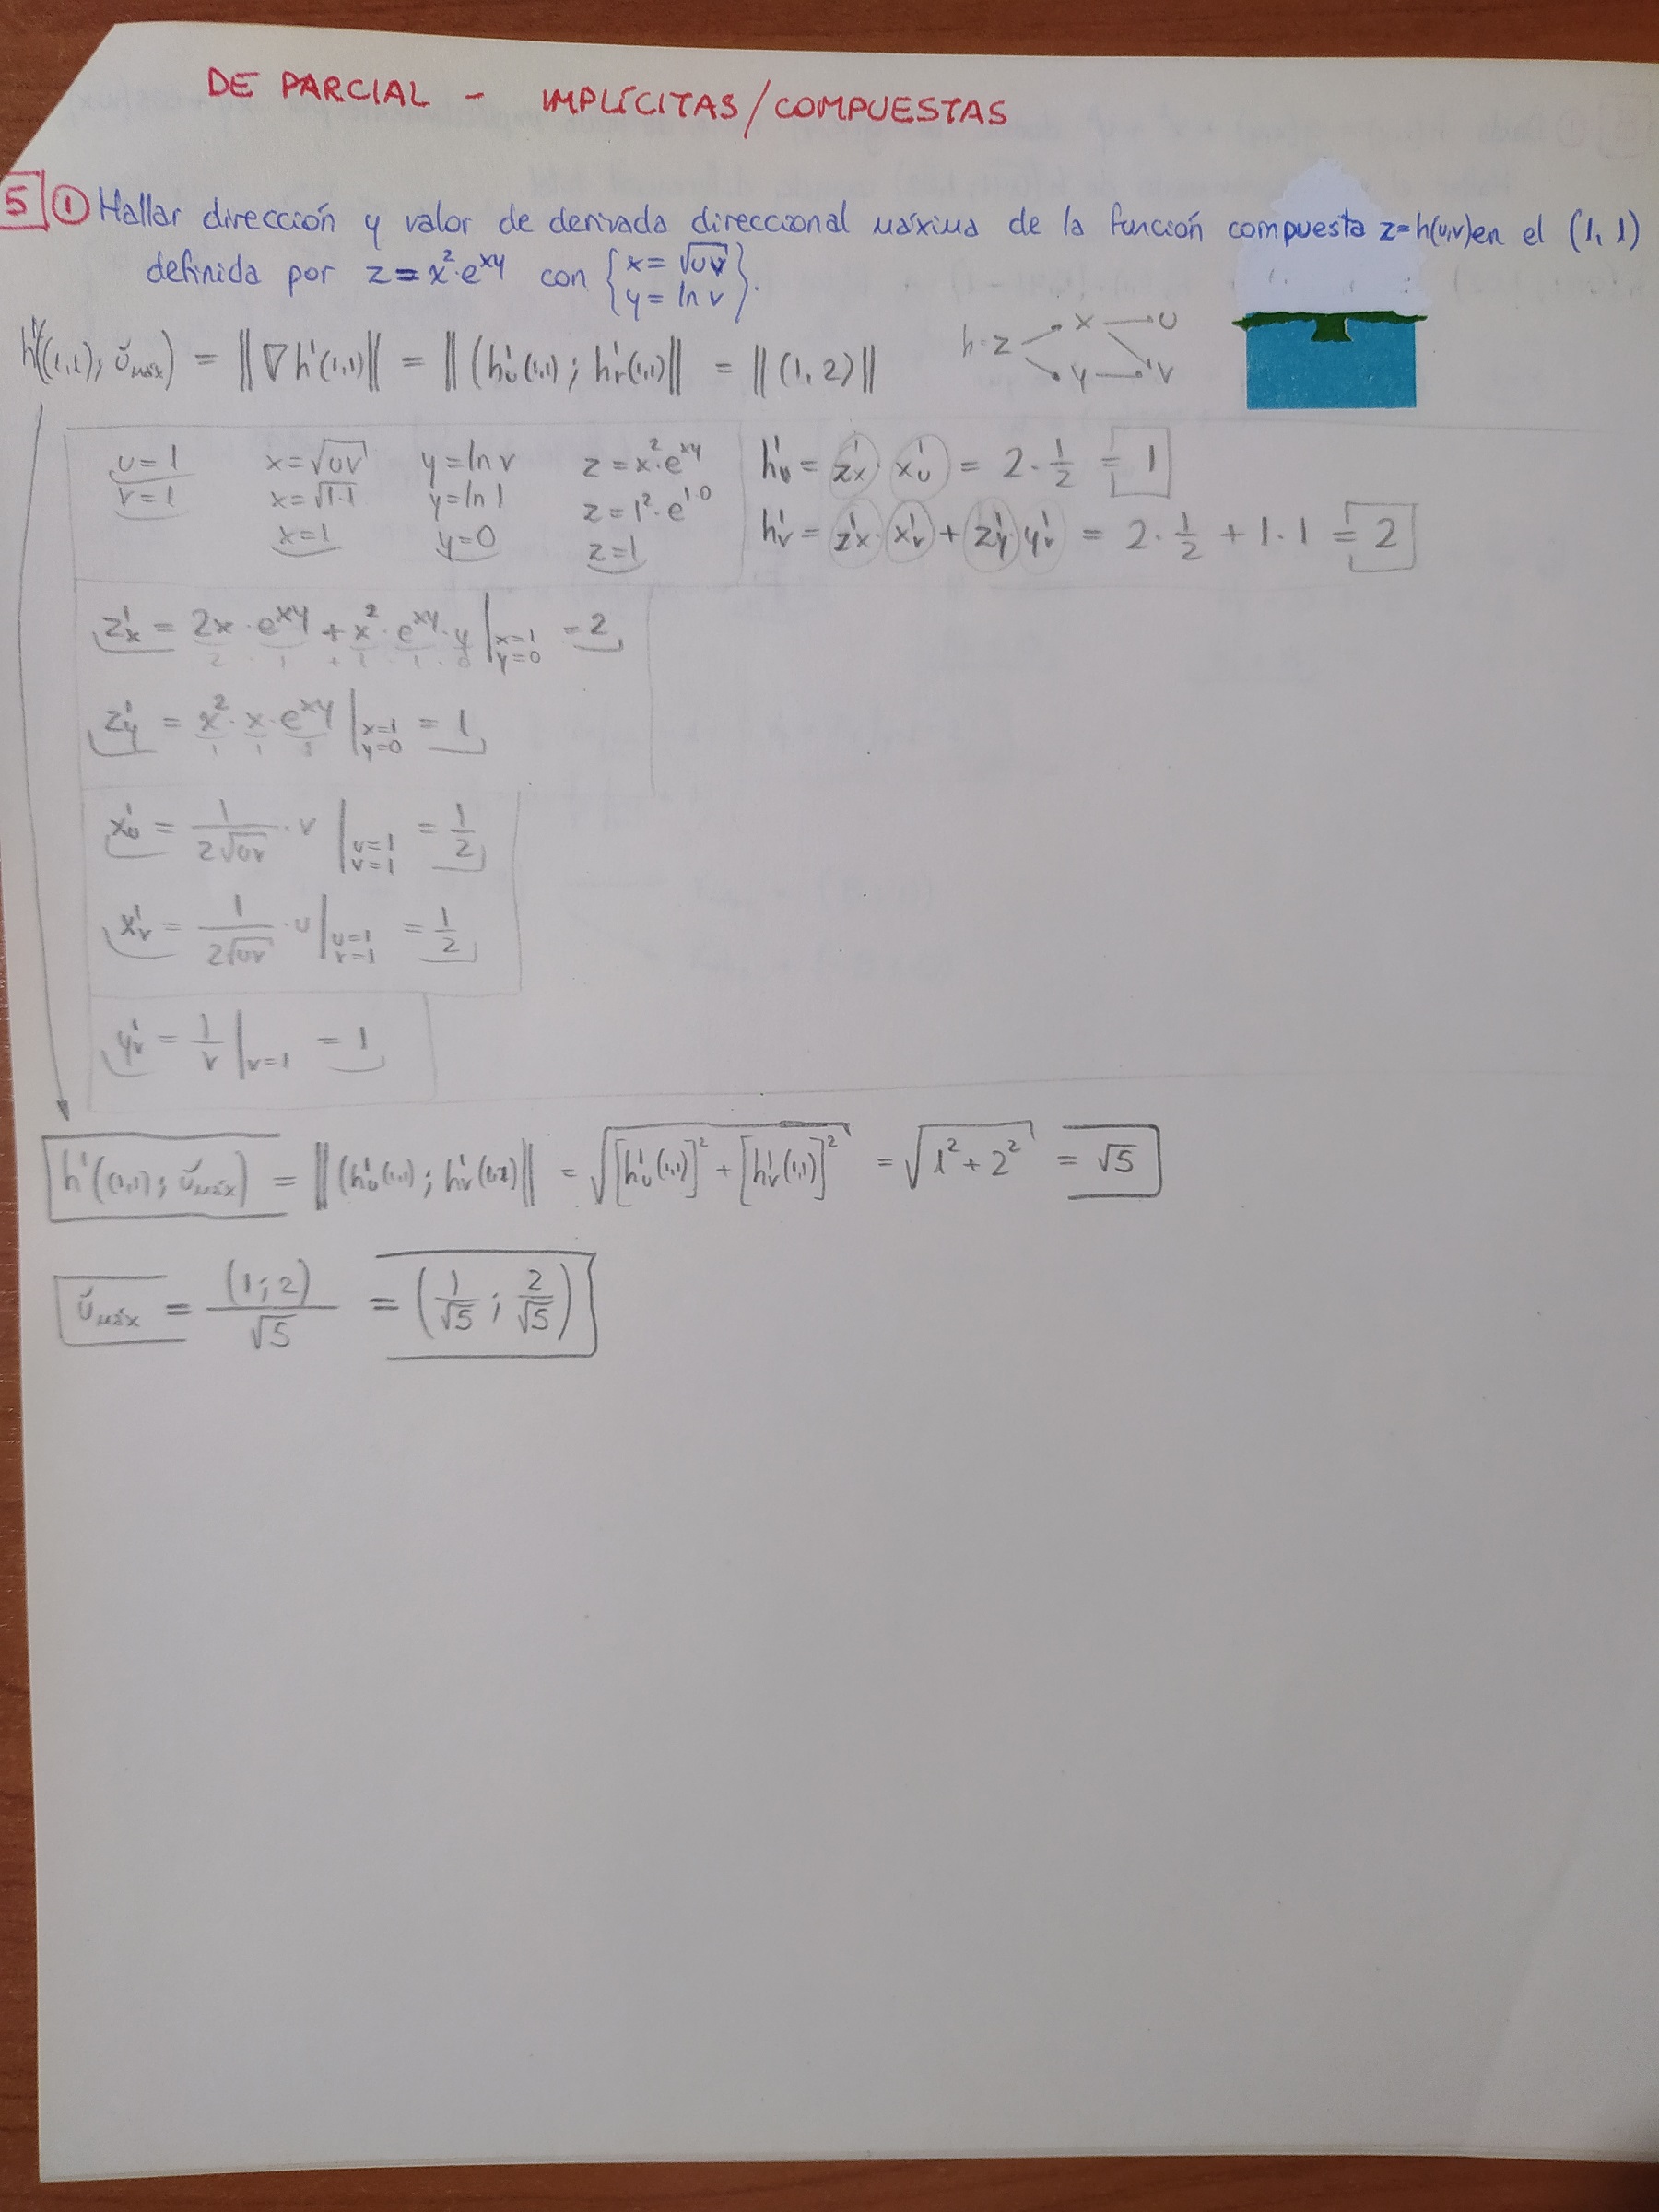 DE PARCIAL - IMPLÍCITAS/COMPUESTAS
5 ① Hallar dirección y valor de derivada direccional máxima de la función compuesta z=h(u,v) en el (1, 1)
definida por z = x²·e^xy con { x = √uv
y = ln v }.
h'((1,1); ŭmáx) = ‖∇h'(1,1)‖ = ‖(h'u(1,1) ; h'v(1,1)‖ = ‖(1, 2)‖
h-z x u
y v
u=1 x=√uv y=ln v z=x²·e^xy h'u = z'x · x'u = 2·1/2 = 1
v=1 x=√1·1 y=ln 1 z=1²·e^1·0
x=1 y=0 z=1 h'v = z'x · x'v + z'y · y'v = 2·1/2 + 1·1 = 2
z'x = 2x·e^xy + x²·e^xy·y | x=1 y=0 = 2
2 · 1 + 1 · 1 · 0
z'y = x²·x·e^xy | x=1 y=0 = 1
1 1 1
x'u = 1/2√uv · v | u=1 v=1 = 1/2
x'v = 1/2√uv · u | u=1 v=1 = 1/2
y'v = 1/v | v=1 = 1
h'((1,1); ŭmáx) = ‖(h'u(1,1) ; h'v(1,1)‖ = √[h'u(1,1)]² + [h'v(1,1)]² = √1² + 2² = √5
ŭmáx = (1;2)/√5 = (1/√5 ; 2/√5)